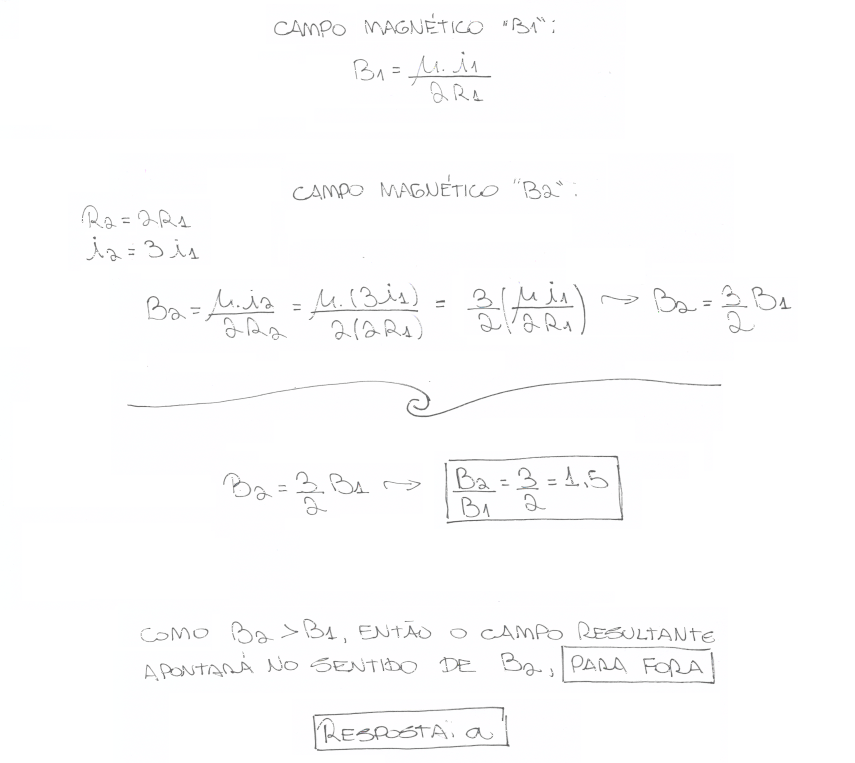 CAMPO MAGNÉTICO "B1":
B1 = μ.i1 / 2R1
CAMPO MAGNÉTICO "B2":
R2 = 2R1
i2 = 3i1
B2 = μ.i2 / 2R2 = μ.(3i1) / 2(2R1) = 3/2 (μ i1 / 2R1) ⇝ B2 = 3/2 B1
B2 = 3/2 B1 ⇝ B2/B1 = 3/2 = 1,5
COMO B2 > B1, ENTÃO O CAMPO RESULTANTE
APONTARÁ NO SENTIDO DE B2, PARA FORA
RESPOSTA: a